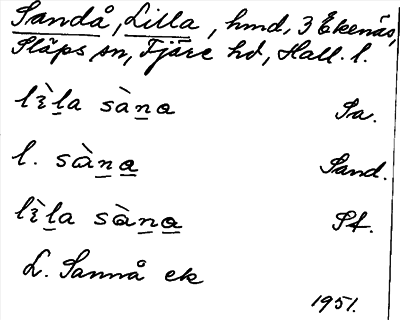 Sandå, Lilla, hmd, 3 Ekenäs,
Släps sn, Fjäre hd, Hall. l.
lìl̲a sàn̲a Sa.
l. sàn̲a̲ Sand.
lìl̲a sàn̲a̲ St.
L. Sannå ek
1951.